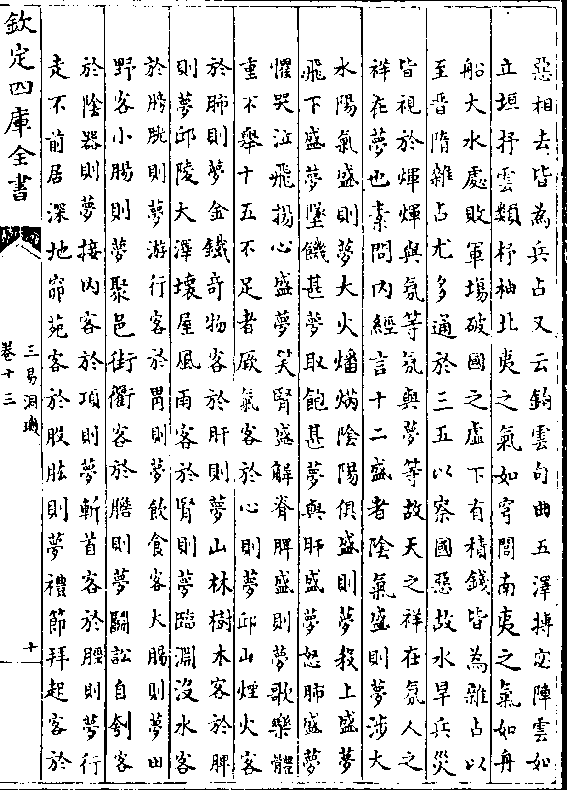 惡相去皆為兵占又云鈎雲句曲五澤摶宻陣雲如
立垣抒雲類杼袖北夷之氣如穹閭南夷之氣如舟
船大水處敗軍塲破國之虛下有積錢皆為雜占以
至晉隋雜占尤多通於三五以察國惡故水旱兵災
皆視於煇煇與氛等氛與夢等故天之祥在氛人之
祥在夢也素問内經言十二盛者陰氣盛則夢涉大
水陽氣盛則夢大火燔焫陰陽俱盛則夢殺上盛夢
飛下盛夢墜饑甚夢取飽甚夢與肝盛夢怒肺盛夢
懼哭泣飛揚心盛夢笑腎盛解脊脾盛則夢歌樂體
重不舉十五不足者厥氣客於心則夢邱山煙火客
於肺則夢金鐵奇物客於肝則夢山林樹木客於脾
則夢邱陵大澤壊屋風雨客於腎則夢臨淵没水客
於膀胱則夢游行客於胃則夢飲食客大腸則夢田
野客小腸則夢聚邑街衢客於膽則夢鬭訟自刳客
於陰器則夢接内客於項則夢斬首客於脛則夢行
走不前居深地窌苑客於股肱則夢禮節拜起客於
欽定四庫全書
三易洞璣
卷十三
十